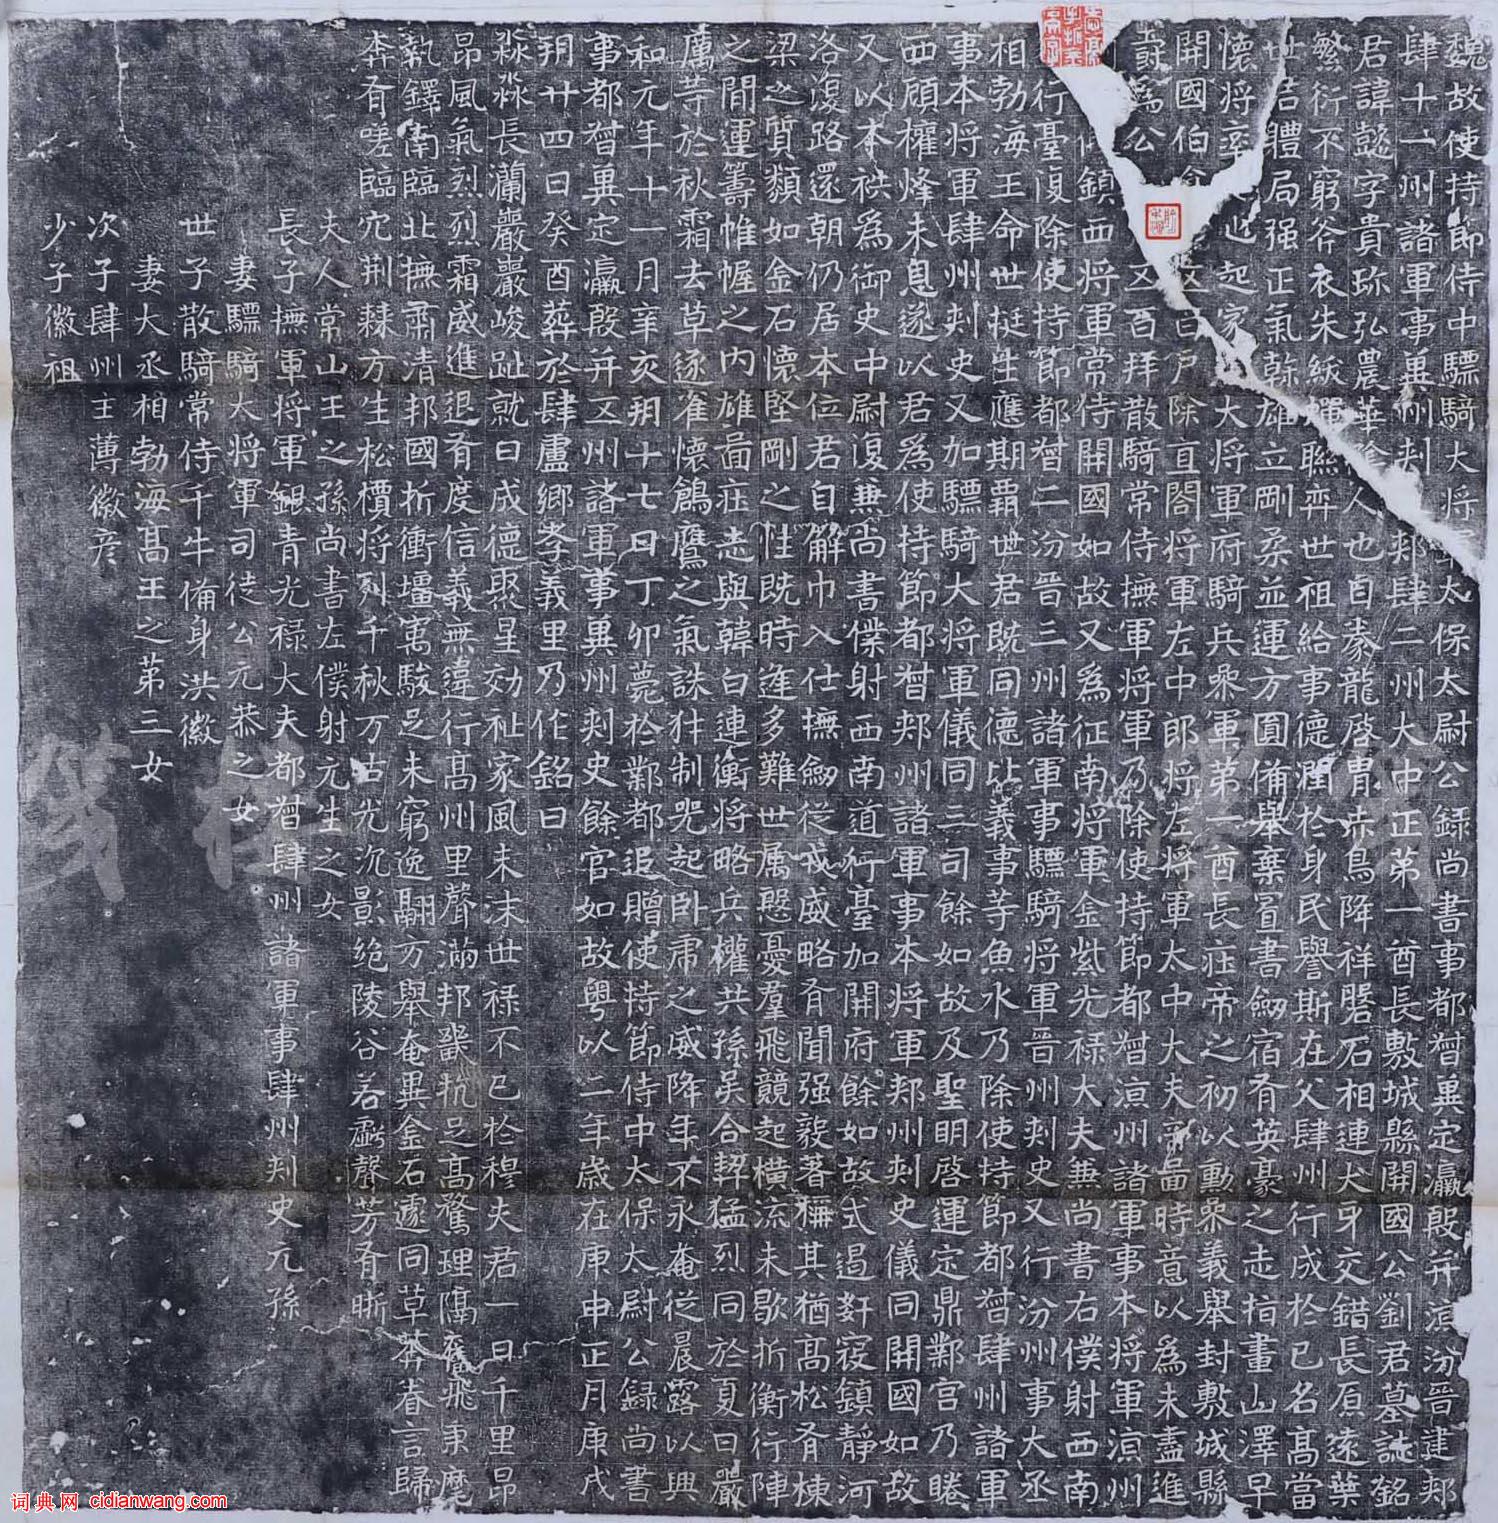 魏故使持節侍中驃騎大將太保太尉公錄尚書事都督冀定瀛殷并涼汾晉建郟
肆十一州諸軍事冀州刾郟肆二州大中正第一酋長敷城縣開國公劉君墓誌銘
君諱懿字貴珎弘農華陰人也自豢龍啓胄赤鳥降祥磐石相連犬牙交錯長原遠葉
繁衍不窮斧衣朱紱蟬聯弈世祖給事德潤於身民譽斯在父肆州行成於已名高當
世君體局强正氣幹雄立剛柔並運方圓俻舉棄置書劒宿有英豪之志指畫山澤早
懷將率也起家大將軍府騎兵叅軍第一酋長莊帝之初以勳叅義舉封敷城縣
開國伯食百戶除直閤將軍左中郎將左將軍太中大夫帝啚時意以為未盡進
爵為公五百拜散騎常侍撫軍將軍乃除使持節都督涼州諸軍事本將軍涼州
鎮西將軍常侍開國如故又為征南將軍金紫光祿大夫兼尚書右僕射西南
行臺復除使持節都督二汾晉三州諸軍事驃騎將軍晉州刾史又行汾州事大丞
相勃海王命世挺生應期霸世君既同德比義事等魚水乃除使持節都督肆州諸軍
事本將軍肆州刾史又加驃騎大將軍儀同三司餘如故及聖明啓運定鼎鄴宫乃睠
西顧權烽未息遂以君為使持節都督郟州諸軍事本將軍郟州刾史儀同開國如故
又以本秩為御史中尉復兼尚書僕射西南道行臺加開府餘如故式遏姧寇鎮靜河
洛復路還朝仍居本位君自解巾入仕撫劒從戎威略有聞强毅著稱其猶高松有棟
梁之質類如金石懷堅剛之性既時逢多難世属慇憂羣飛競起橫流未歇折衝行陣
之間運籌帷幄之內雄啚莊志與韓白連衡將略兵權共孫吳合契猛烈同於夏日嚴
厲等於秋霜去草逐雀懷鶬鷹之氣誅犲制兕起卧虎之威降年不永奄從晨露以興
和元年十一月辛亥朔十七日丁卯薨於鄴都追贈使持節侍中太保太尉公錄尚書
事都督冀定瀛殷并五州諸軍事冀州刾史餘官如故粤以二年歲在庚申正月庚戌
朔廿四日癸酉葬於肆盧鄉孝義里乃作銘曰
淼淼長瀾巖巖峻趾就日成德聚星効祉家風未沫世祿不已於穆夫君一日千里昂
昂風氣烈烈霜威進退有度信義無違行高州里聲滿邦畿抗足高騖理隔奮飛秉麾
執鐸南臨北撫肅清邦國折衝壃㝢駿足未窮逸翮方舉奄異金石遽同草莽眷言歸
葬有嗟臨穴荆棘方生松檟將列千秋万古光沉影絕陵谷若虧聲芳有晰
夫人常山王之孫尚書左僕射元生之女
長子撫軍將軍銀青光祿大夫都督肆州諸軍事肆州刾史元孫
妻驃騎大將軍司徒公元恭之女
世子散騎常侍千牛俻身洪徽
妻大丞相勃海高王之第三女
次子肆州主薄徽彦
少子徽祖
詞典网 cidianwang.com